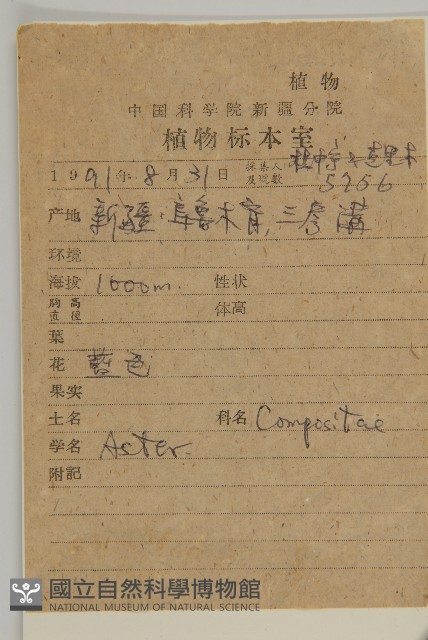 植物
中国科学院新疆分院
植物标本室
1991年8月31日 採集人及号数
5256
产地 新疆:烏魯木齊,三屯溝
环境
海拔 1000m. 性状
胸高直徑 体高
葉
花 藍色
果实
土名 科名 Compositae
学名 Aster.
附記
國立自然科學博物館
NATIONAL MUSEUM OF NATURAL SCIENCE